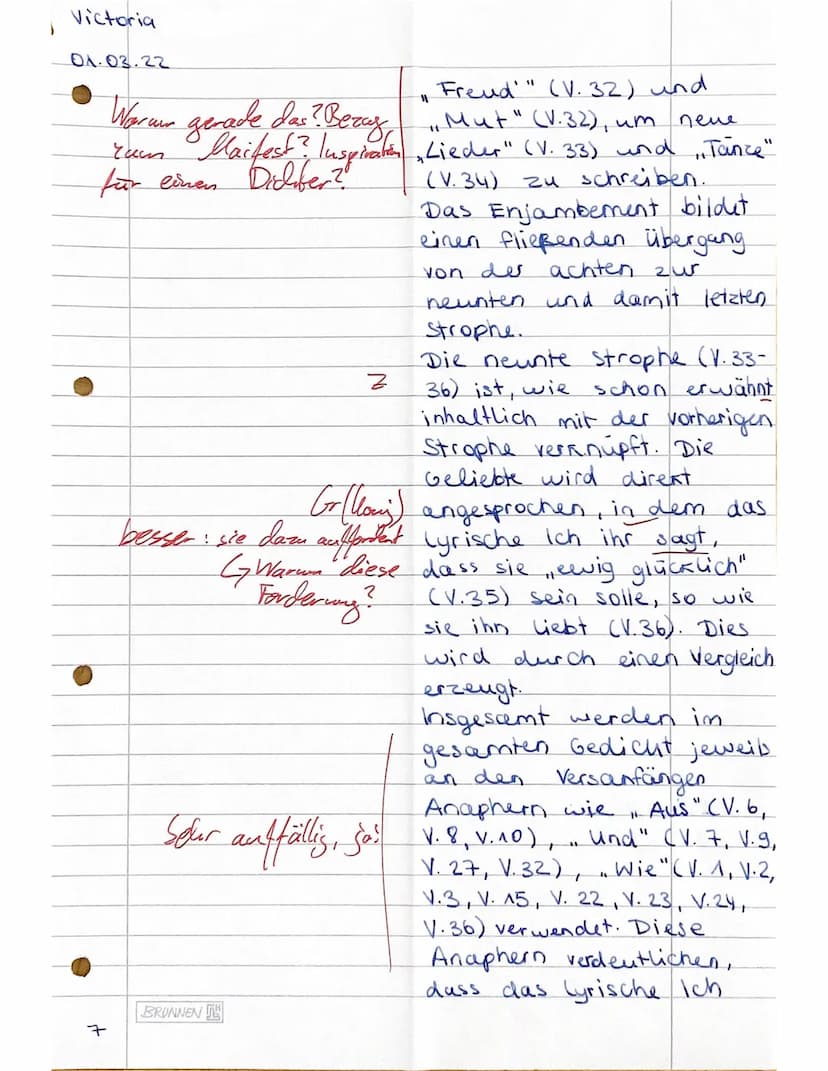 Victoria
01.03.22
Warum gerade das? Bezug
zum Maifest? Inspiration
für einen Dichter?
„Freud'" (V. 32) und
„Mut" (V.32), um neue
„Lieder" (V. 33) und „Tänze"
(V.34) zu schreiben.
Das Enjambement bildet
einen fließenden Übergang
von der achten zur
neunten und damit letzten
Strophe.
Die neunte Strophe (V.33-
Z
36) ist, wie schon erwähnt
inhaltlich mit der vorherigen
Strophe verknüpft. Die
Geliebte wird direkt
Gr (Konj)
angesprochen, in dem das
besser: sie dazu auffordert
lyrische Ich ihr sagt,
↳ Warum diese
dass sie „ewig glücklich"
Forderung?
(V.35) sein solle, so wie
sie ihn liebt (V.36). Dies
wird durch einen Vergleich
erzeugt.
Insgesamt werden im
gesamten Gedicht jeweils
an den Versanfängen
Anaphern wie „Aus" (V. 6,
Sehr auffällig, ja!
V. 8, V. 10), „Und" (V. 7, V.9,
V. 27, V. 32), „Wie" (V. 1, V.2,
V.3, V. 15, V. 22, V. 23, V.24,
V.36) verwendet. Diese
Anaphern verdeutlichen,
dass das lyrische Ich
BRUNNEN
7